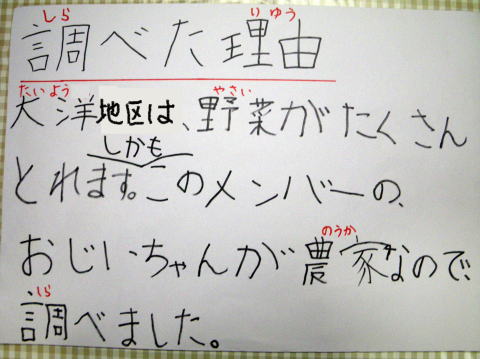 しら りゆう
調べた理由
たいよう やさい
大洋地区は、野菜がたくさん
しかも
とれます。このメンバーの、
のうか
おじいちゃんが農家なので、
しら
調べました。